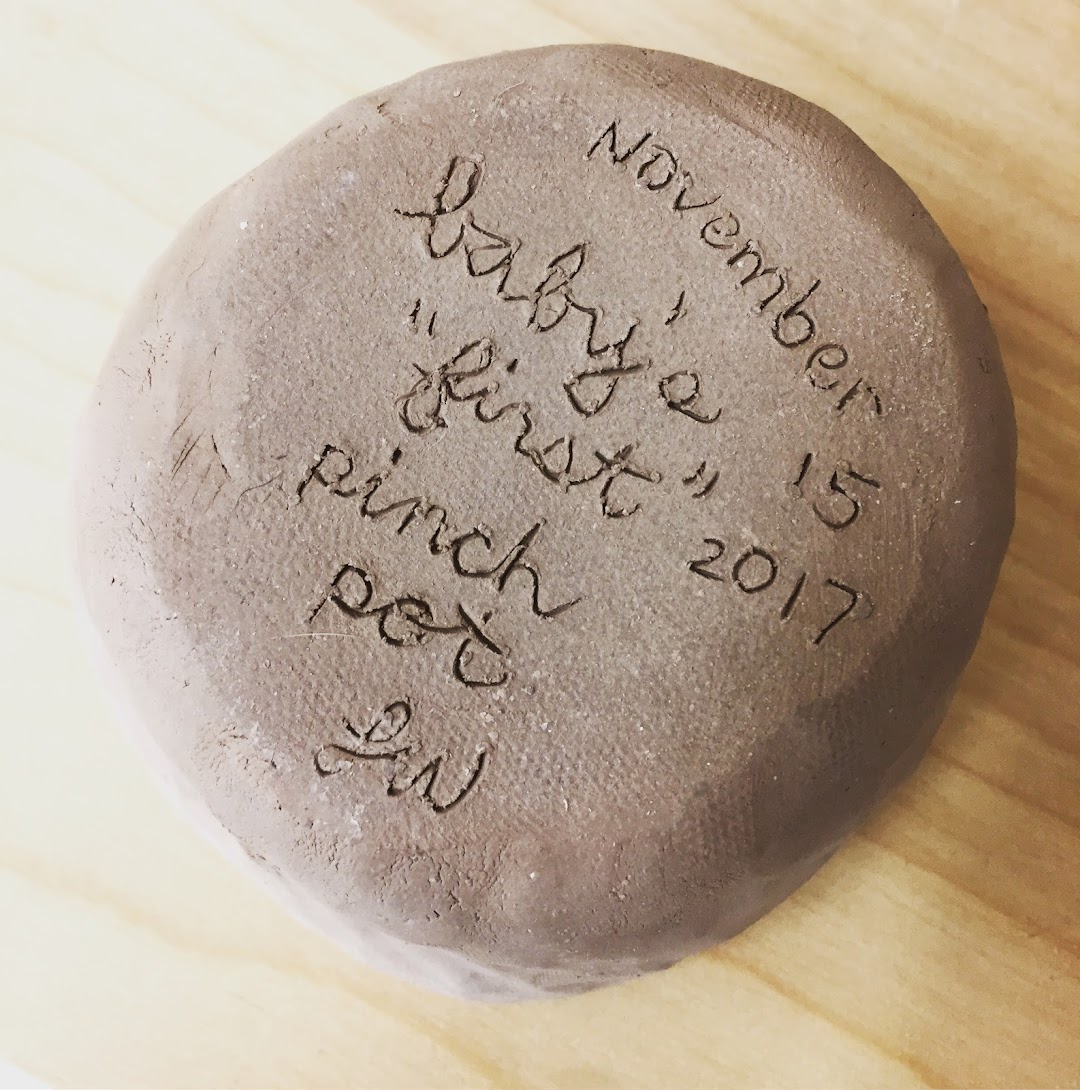 November
15
2017
baby's
"first"
pinch
pot